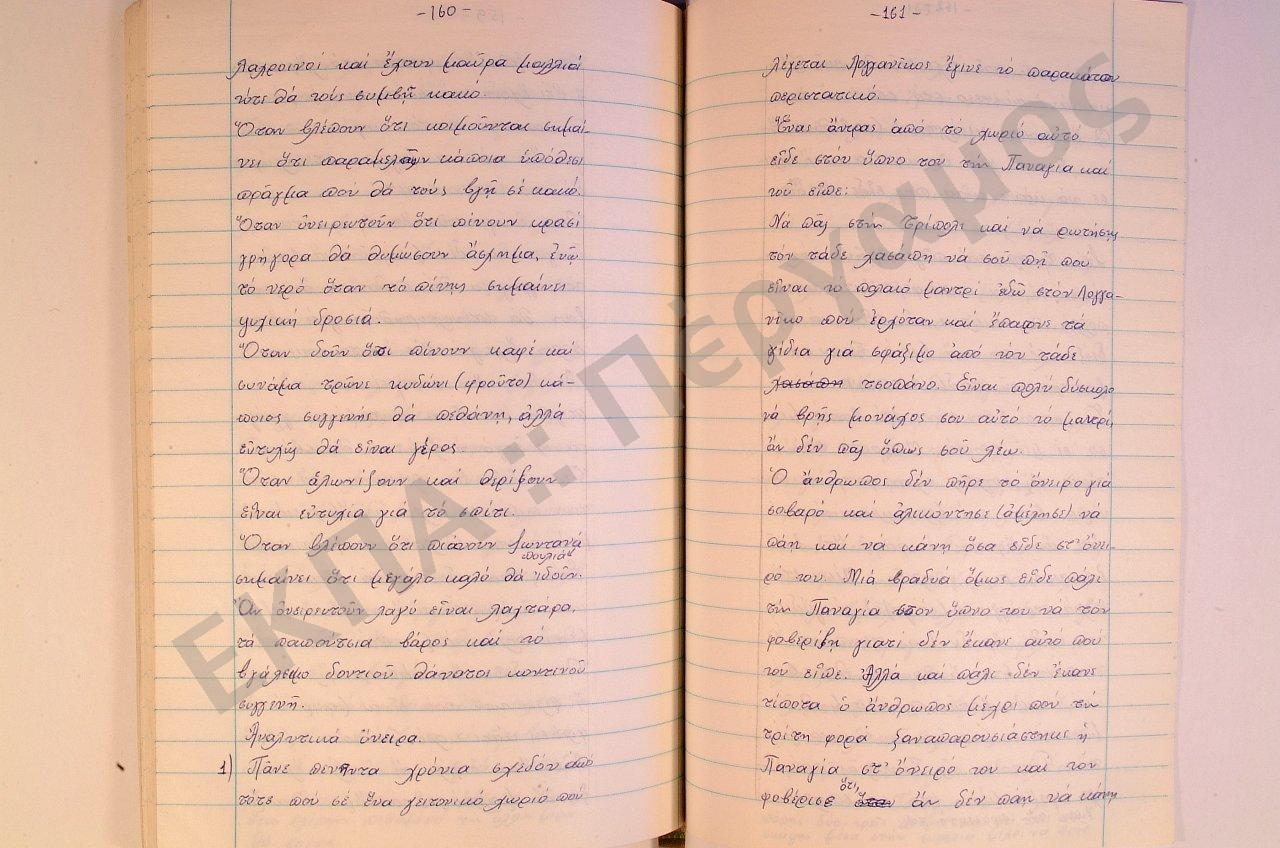 -160-
λαχροινοί καί ἔχουν μαῦρα μαλλιά
τότε θά τούς συμβῇ κακό.
Ὅταν βλέπουν ὅτι κοιμοῦνται σημαί-
νει ὅτι παραμελοῦν κάποια ὑπόθεση
πρᾶγμα πού θά τούς βγῇ σέ κακό.
Ὅταν ὀνειρευτοῦν ὅτι πίνουν κρασί
γρήγορα θά θυμώσουν ἄσχημα, ἐνῷ
τό νερό ὅταν τό πίνῃς σημαίνει
ψυχική δροσιά.
Ὅταν δοῦν ὅτι πίνουν καφέ καί
συνάμα τρῶνε κυδώνι (φροῦτο) κά-
ποιος συγγενής θά πεθάνῃ, ἀλλά
εὐτυχῶς θά εἶναι γέρος.
Ὅταν ἁλωνίζουν καί θερίζουν
εἶναι εὐτυχία γιά τό σπίτι.
Ὅταν βλέπουν ὅτι πιάνουν ζωντανά
πουλιά
σημαίνει ὅτι μεγάλο καλό θά ἰδοῦν.
Ἄν ὀνειρευτοῦν λαγό εἶναι λαχτάρα,
τα παπούτσια βάρος καί τό
βγάλσιμο δοντιοῦ θάνατοι κοντινοῦ
συγγενῆ.
Ἀναλυτικά ὄνειρα.
1) Πᾶνε πενῆντα χρόνια σχεδόν ἀπό
τότε πού σέ ἕνα γειτονικό χωριό πού
-161-
λέγεται Λογγανίκος ἔγινε τό παρακάτω
περιστατικό.
Ἕνας ἄντρας ἀπό τό χωριό αὐτό
εἶδε στόν ὕπνο του τήν Παναγία καί
τοῦ εἶπε:
Νά πᾷς στήν Τρίπολι καί νά ρωτήσῃς
τόν τάδε χασάπη νά σοῦ πῇ πού
εἶναι τό παλαιό μαντρί ἐδῶ στόν Λογγα-
νίκο πού ἐρχόταν καί ἔπαιρνε τά
γίδια γιά σφάξιμο ἀπό τόν τάδε
χασάπη τσοπάνο. Εἶναι πολύ δύσκολο
νά βρῇς μονάχος σου αὐτό τό μαντρί,
ἄν δέν πᾷς ὅπως σοῦ λέω.
Ὁ ἄνθρωπος δέν πῆρε τό ὄνειρο γιά
σοβαρό καί ἀλικόντησε (ἀμέλησε) νά
πάῃ καί νά κάνῃ ὅσα εἶδε στ' ὄνει-
ρό του. Μιά βραδυά ὅμως εἶδε πάλι
τήν Παναγία στον ὕπνο του νά τόν
φοβερίζῃ γιατί δέν ἔκανε αὐτό πού
τοῦ εἶπε. Ἀλλά καί πάλι δέν ἔκανε
τίποτα ὁ ἄνθρωπος μέχρι πού τήν
τρίτη φορά ξαναπαρουσιάστηκε ἡ
Παναγία στ' ὄνειρό του καί τον
ὅτι
φοβέρισε ὅταν ἄν δέν πάῃ νά κάνῃ
ΕΚΠΑ :: Πέργαμος